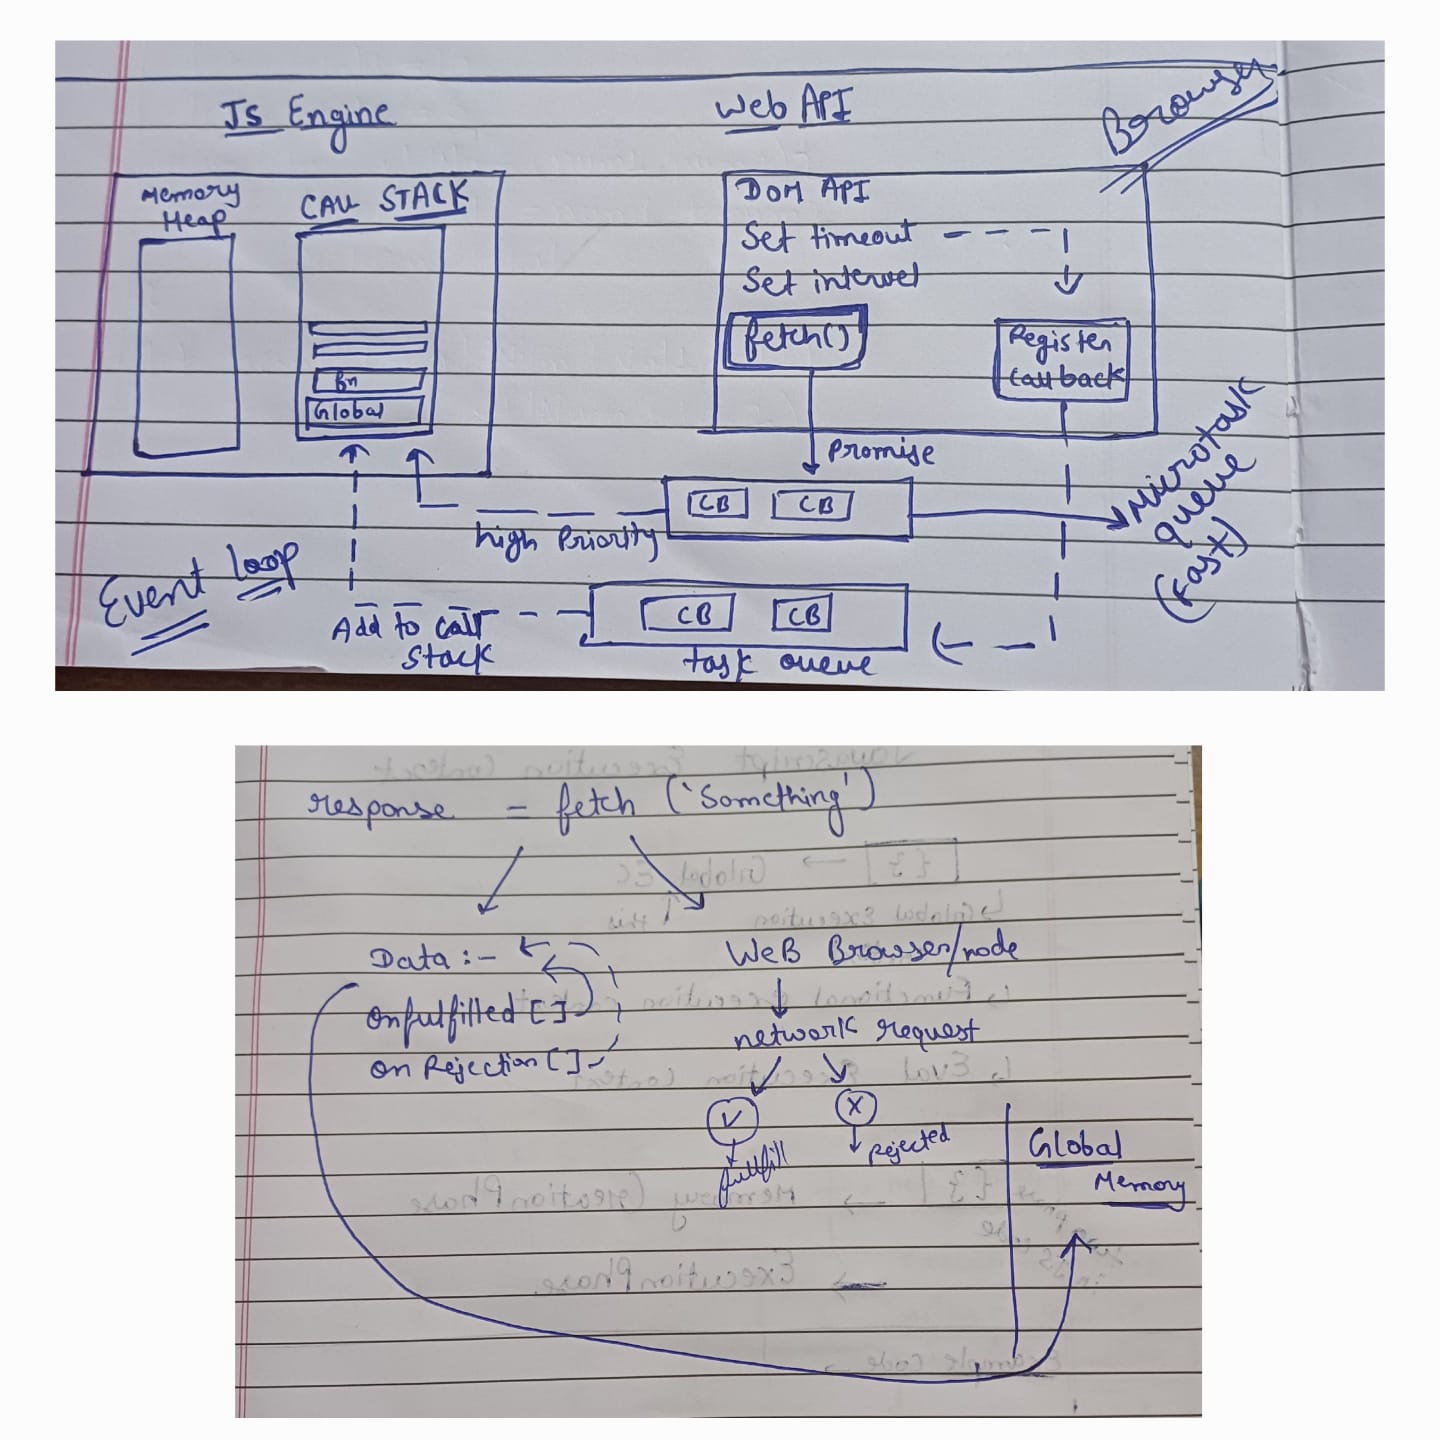 Js Engine
Web API
Browser
Memory
Heap
CALL STACK
fn
Global
DOM API
Set timeout
Set intervel
fetch()
Register
Callback
Promise
CB CB
high Priority
Microtask
queue
(Fast)
Event loop
Add to call
Stack
CB CB
task queue
response = fetch ('Something')
Data :-
Onfulfilled [ ]
On Rejection [ ]
WeB Browser/node
network request
✓ X
fullfill
Rejected
Global
Memory